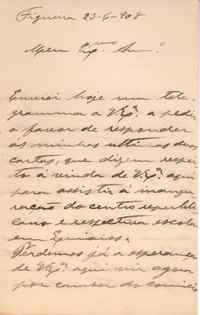 Figueira 23-6-908
Meu Exmo Snr.!
Enviei hoje um tele-
gramma a V. Exª. a pedir
o favor de responder
ás minhas ultimas duas
cartas, que dizem respei-
to á vinda de V. Exª. aqui
para assistir á inaugu-
ração do centro republi-
cano e respectiva escola
em
Perdemos já a esperança
de V. Exª. aqui vir agora
por causa do comicio